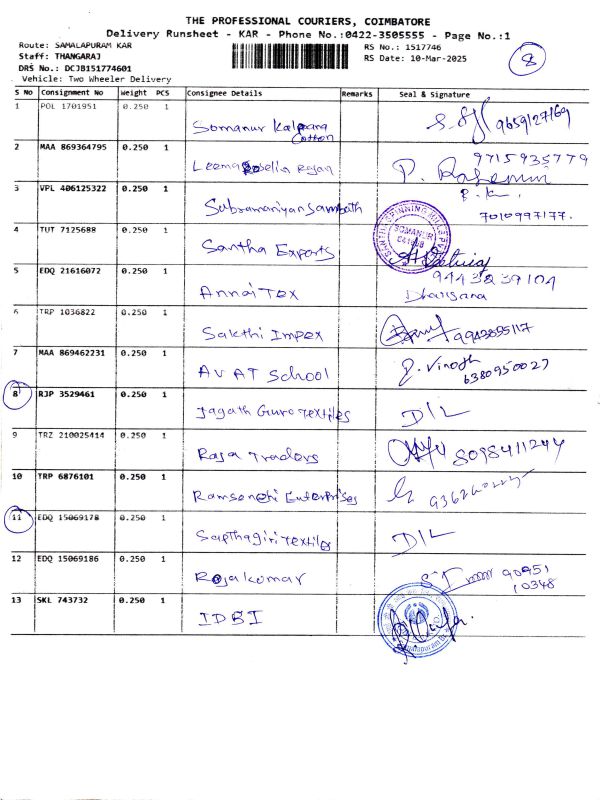 THE PROFESSIONAL COURIERS, COIMBATORE
Delivery Runsheet - KAR - Phone No.:0422-3505555 - Page No.:1
Route: SAMALAPURAM KAR RS No.: 1517746
Staff: THANGARAJ RS Date: 10-Mar-2025
DRS No.: DCJB151774601
8
Vehicle: Two Wheeler Delivery
S No Consignment No Weight PCS Consignee Details Remarks Seal & Signature
1 POL 1701951 0.250 1 Somanur Kalpana Cotton 9659127169
2 MAA 869364795 0.250 1 Leema Roselin Rajan 9715935779
3 VPL 406125322 0.250 1 Subramaniyan Sambath 7010997177.
4 TUT 7125688 0.250 1 Santha Exports
SOMANUR
5 EDQ 21616072 0.250 1 Annai Tex 9443839104
Dharsana
6 TRP 1036822 0.250 1 Sakthi Impex 9942895117
7 MAA 869462231 0.250 1 AVAT School P. Vinoth
6380950027
8 RJP 3529461 0.250 1 Jagath Guru Textiles D/L
9 TRZ 210025414 0.250 1 Raja Traders 8098411244
10 TRP 6876101 0.250 1 Enterprises
11 EDQ 15069178 0.250 1 Sapthagiri Textiles D/L
12 EDQ 15069186 0.250 1 Rajakumar 90951
10348
13 SKL 743732 0.250 1 IDBI